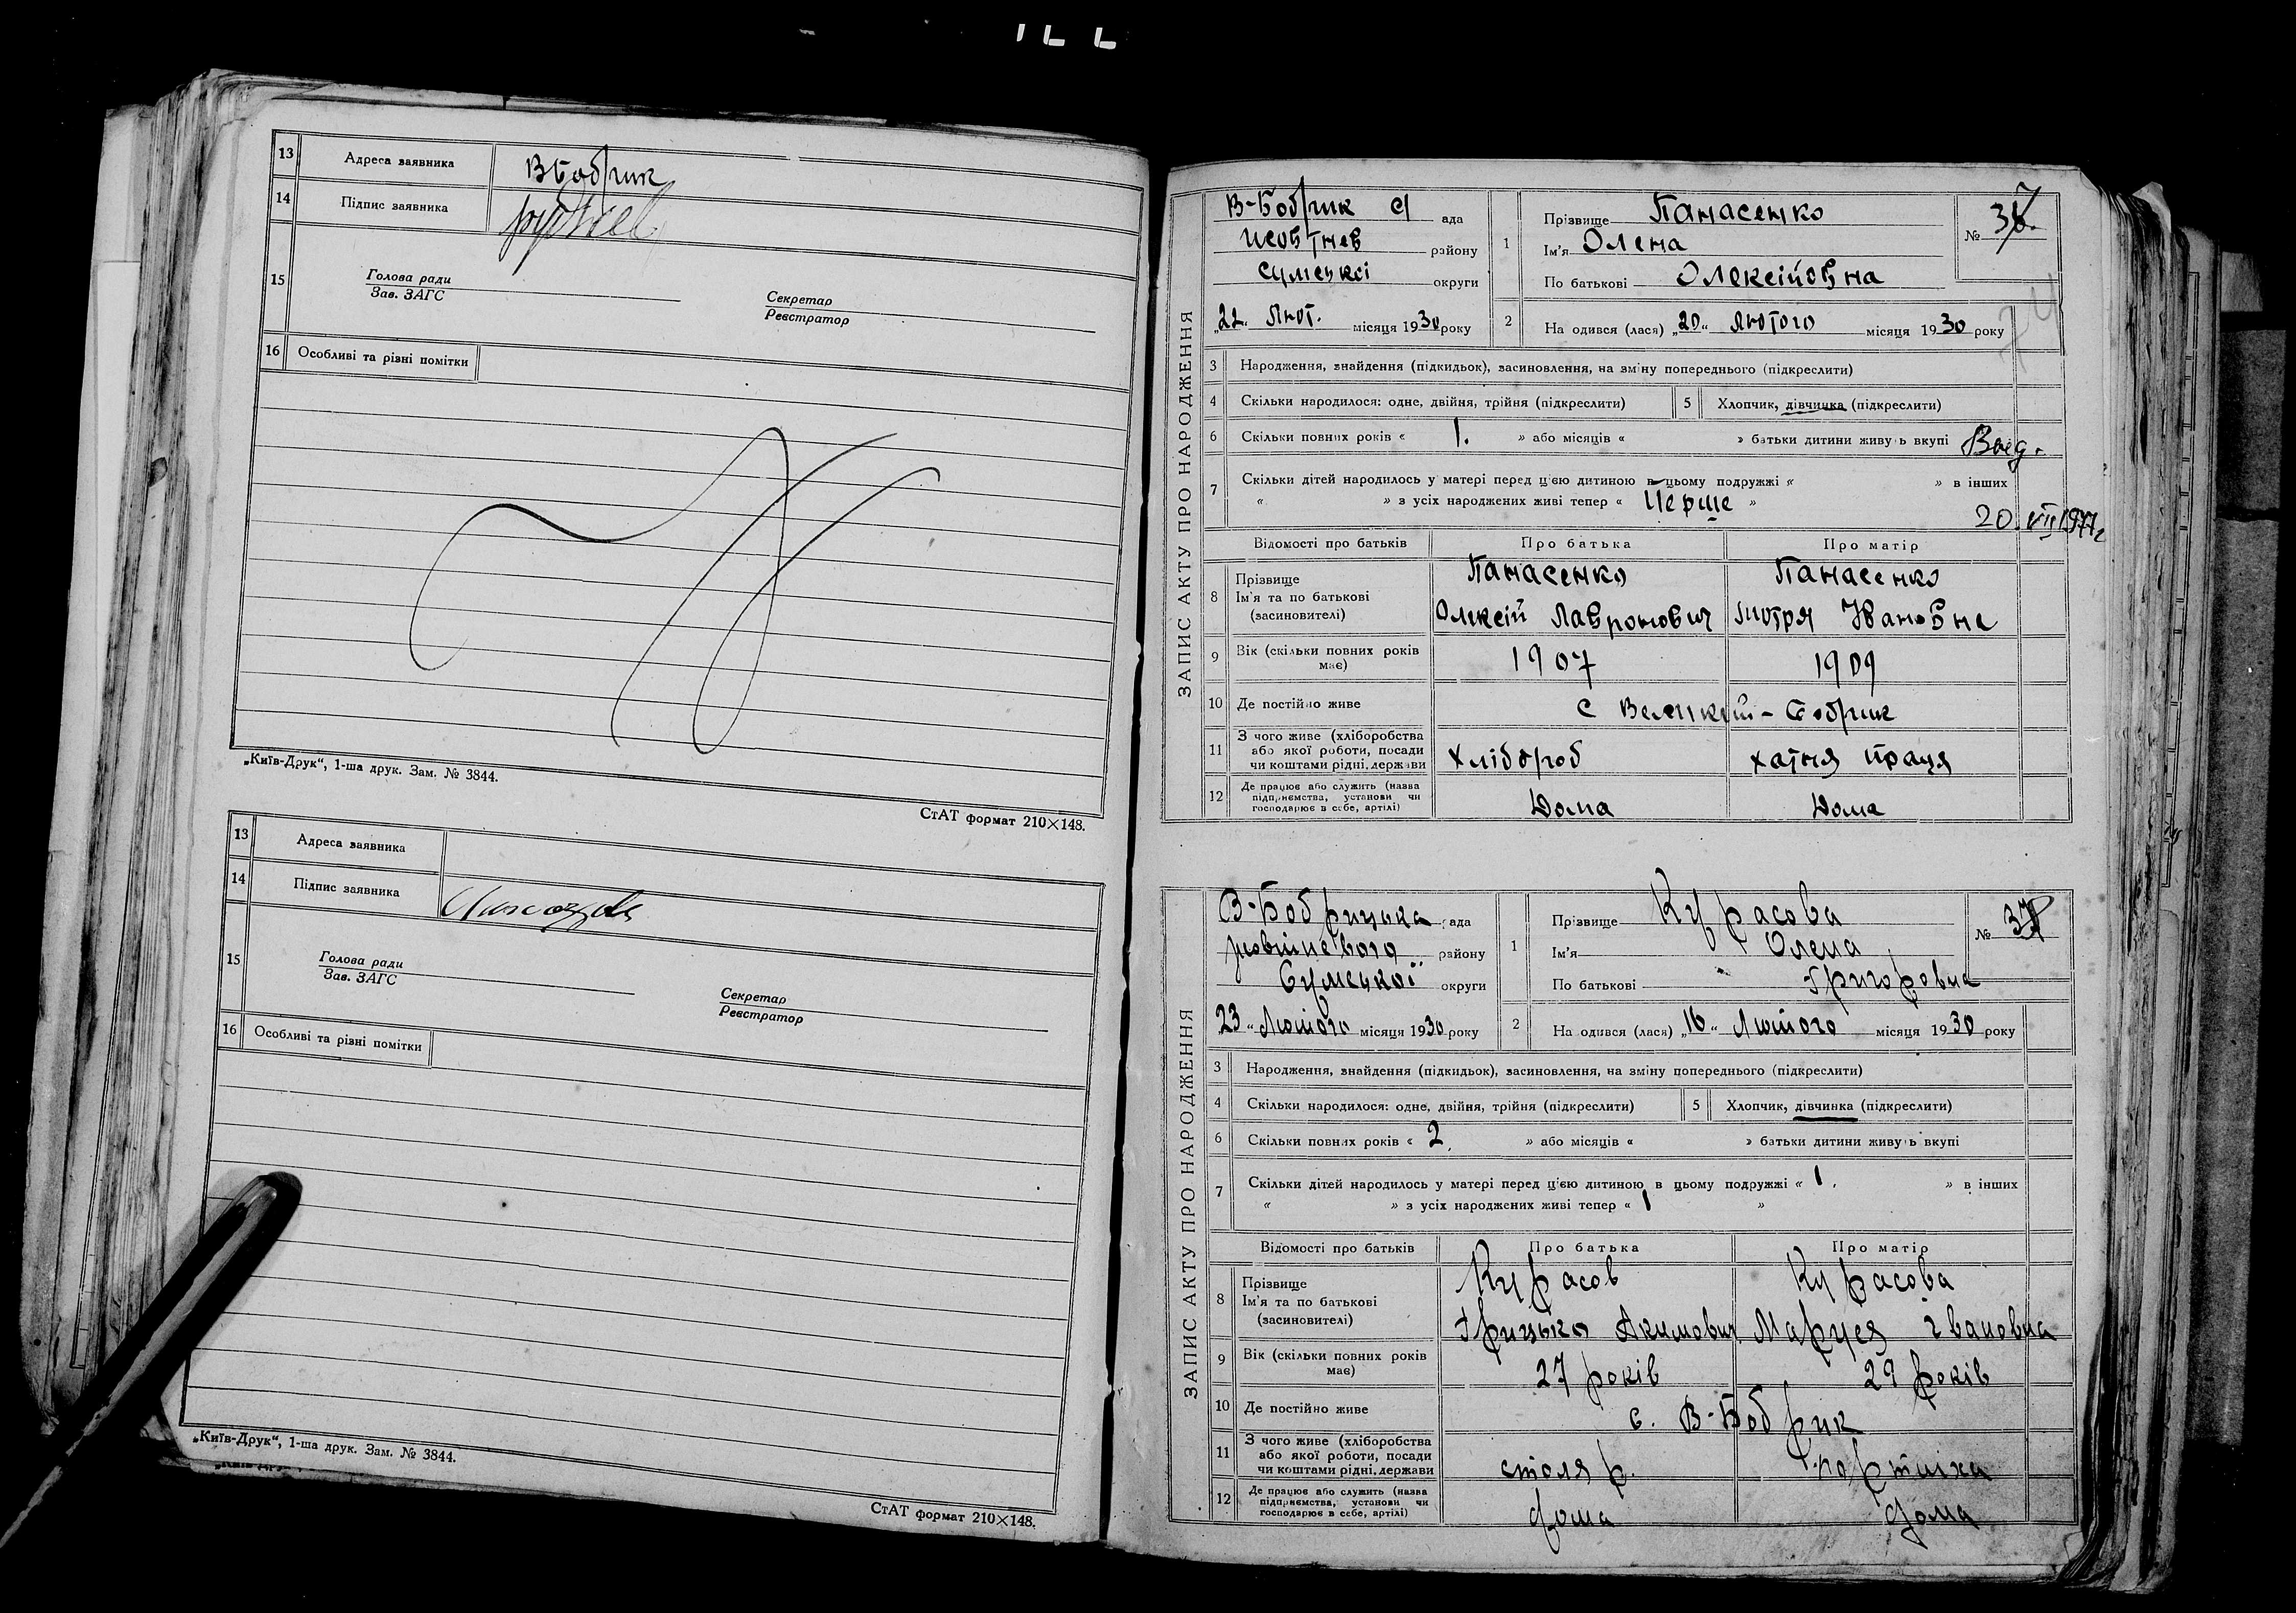 13 Адреса заявника В Бобрик
14 Підпис заявника
15 Голова ради
Зав. ЗАГС
Секретар
Реєстратор
16 Особливі та різні помітки
„Київ-Друк“, 1-ша друк. Зам. № 3844.
СтАТ формат 210×148.
13 Адреса заявника
14 Підпис заявника
15 Голова ради
Зав. ЗАГС
Секретар
Реєстратор
16 Особливі та різні помітки
„Київ-Друк“, 1-ша друк. Зам. № 3844.
СтАТ формат 210×148.
ЗАПИС АКТУ ПРО НАРОДЖЕННЯ
В-Бобрик с/ ада
району
округи
„22“ Лют. місяця 1930 року
1 Прізвище Панасенко
Ім'я Олена
По батькові Олексійовна
№
2 На одився (лася) „20“ Лютого місяця 1930 року
3 Народження, знайдення (підкидьок), засиновлення, на зміну попереднього (підкреслити)
4 Скільки народилося: одне, двійня, трійня (підкреслити) 5 Хлопчик, дівчинка (підкреслити)
6 Скільки повних років « 1. » або місяців « » батьки дитини живуть вкупі
7 Скільки дітей народилось у матері перед цією дитиною в цьому подружжі « » в інших
« » з усіх народжених живі тепер « Перше »
20
Відомості про батьків Про батька Про матір
8 Прізвище Панасенко Панасенко
Ім'я та по батькові
(засиновителі) Олексій Лавронович Мотря Івановне
9 Вік (скільки повних років має) 1907 1909
10 Де постійно живе с Великий-Бобрик
11 З чого живе (хліборобства
або якої роботи, посади
чи коштами рідні, держави Хлібороб хатня праця
12 Де працює або служить (назва
підприємства, установи чи
господарює в себе, артілі) Дома Дома
ЗАПИС АКТУ ПРО НАРОДЖЕННЯ
В-Бобрицька ада
району
Сумської округи
23 „Лютого місяця 1930 року
1 Прізвище Курасова
Ім'я Олена
По батькові Григоровна
№ 37
2 На одився (лася) „16“ Лютого місяця 1930 року
3 Народження, знайдення (підкидьок), засиновлення, на зміну попереднього (підкреслити)
4 Скільки народилося: одне, двійня, трійня (підкреслити) 5 Хлопчик, дівчинка (підкреслити)
6 Скільки повних років « 2. » або місяців « » батьки дитини живуть вкупі
7 Скільки дітей народилось у матері перед цією дитиною в цьому подружжі « 1. » в інших
« » з усіх народжених живі тепер « 1 »
Відомості про батьків Про батька Про матір
8 Прізвище Курасов Курасова
Ім'я та по батькові
(засиновителі) Грицько Акимович Івановна
9 Вік (скільки повних років має) 27 років 29 років
10 Де постійно живе с. В-Бобрик
11 З чого живе (хліборобства
або якої роботи, посади
чи коштами рідні, держави столяр. портниха
12 Де працює або служить (назва
підприємства, установи чи
господарює в себе, артілі) дома дома